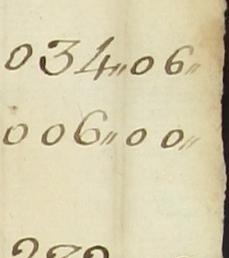 034,,06,,
006,,00,,